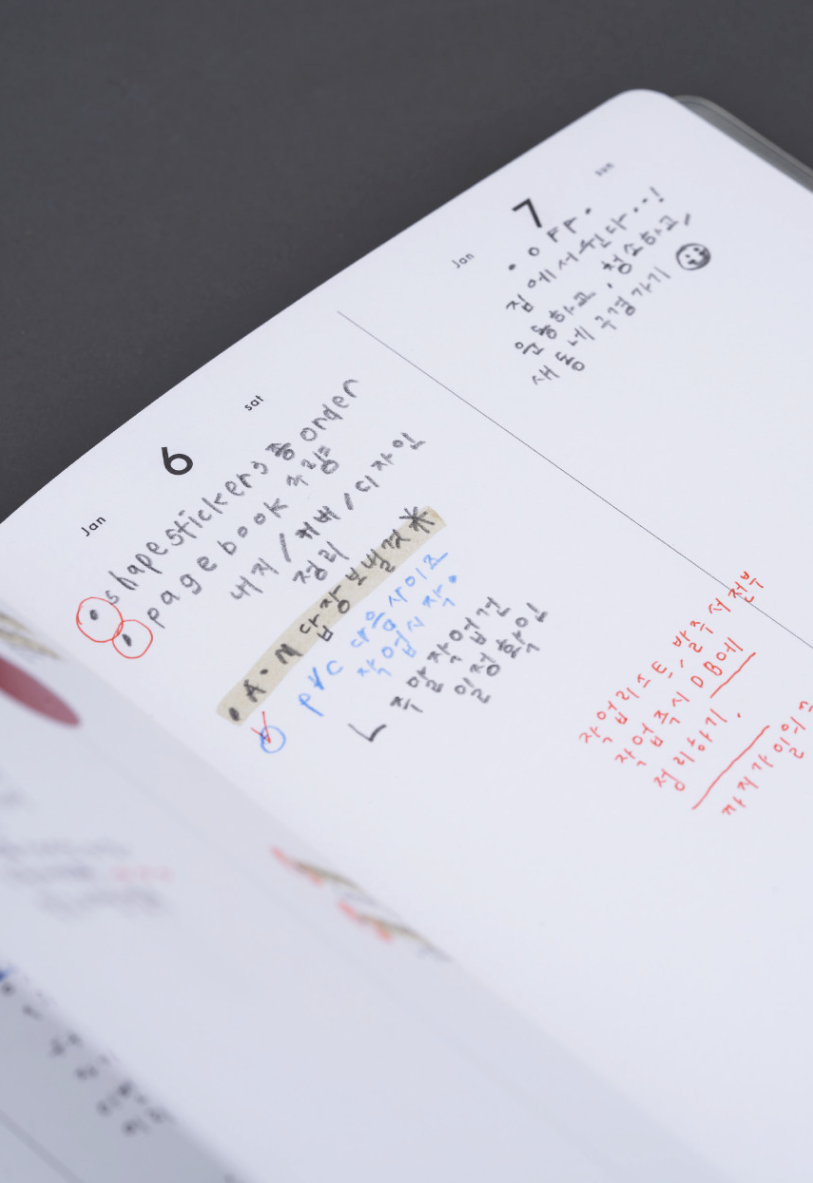 Jan 6 sat
• shape stickers 3종 order
• page book 수량
내지 / 커버 / 디자인
정리
• A·M 답장보낼것 *
PVC 다음사이즈
작업시작.
ㄴ 주말작업건
일정확인
Jan 7 sun
• OFF.
집에서 쉰다..!
운동하고, 청소하고,
새동네 구경가기
작업리스트, 발주서 전부
작업즉시 DB에
정리하기.